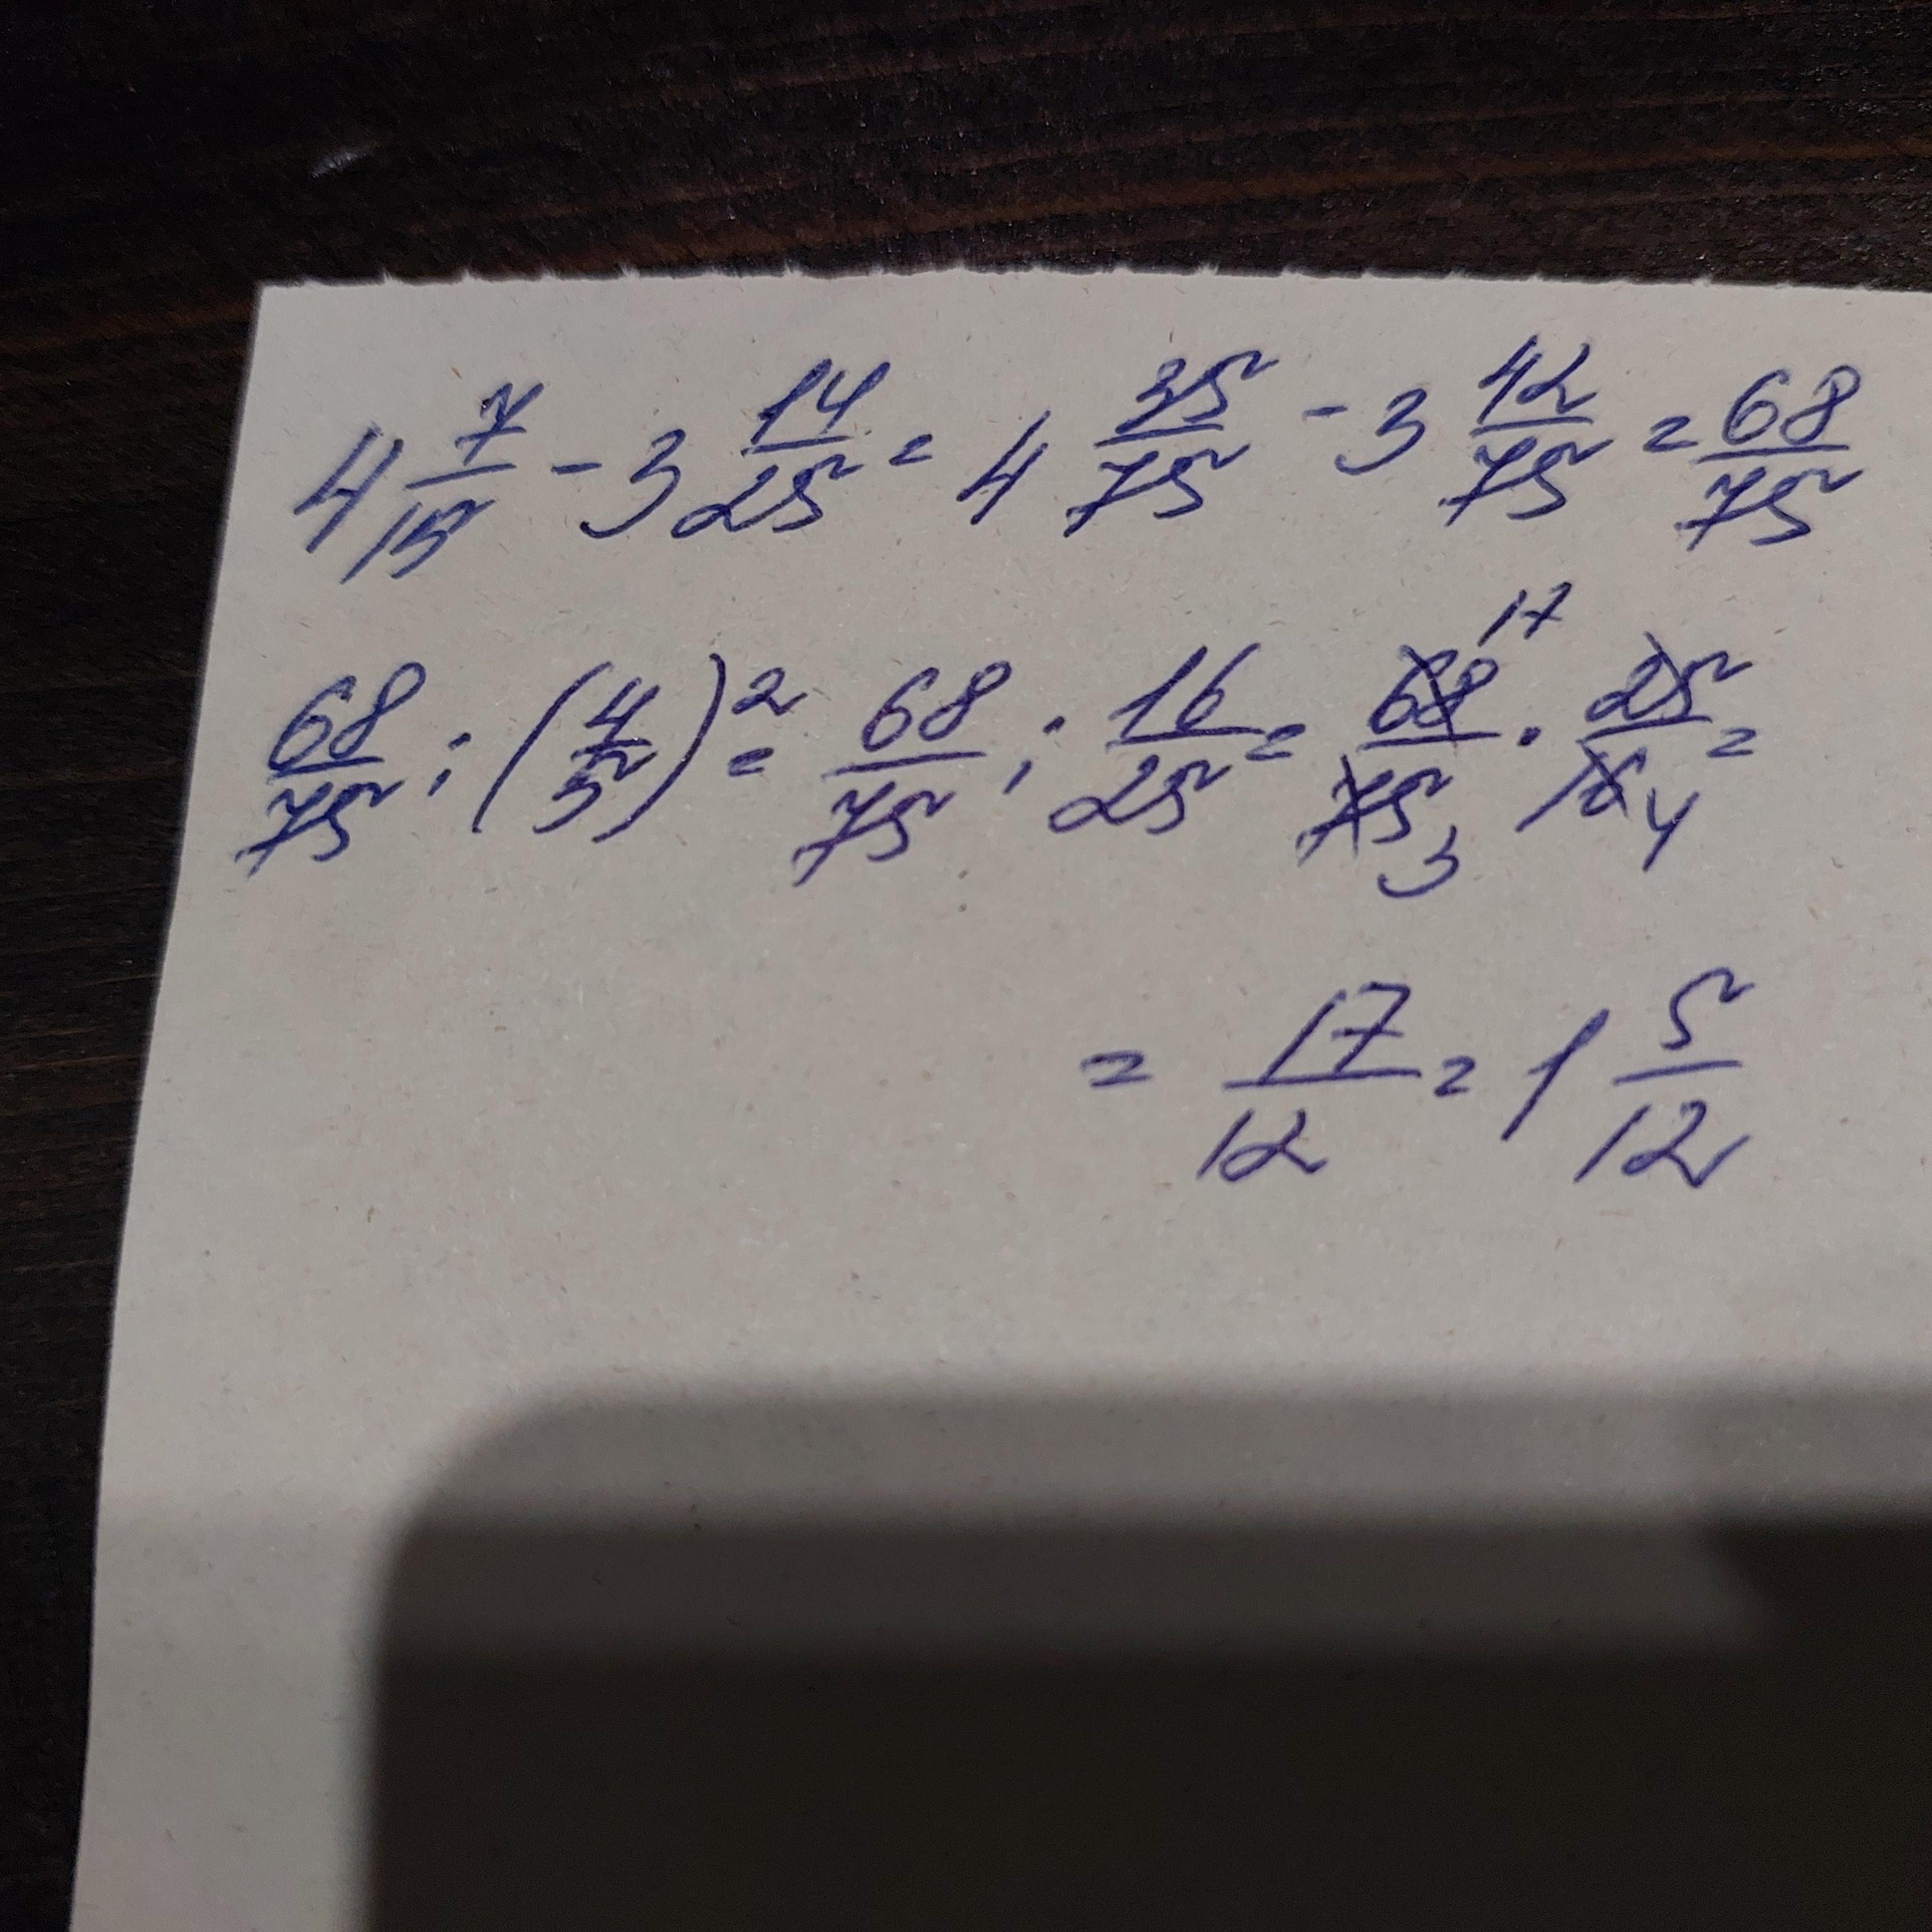 4 7/15 - 3 14/25 = 4 35/75 - 3 42/75 = 68/75
68/75 : (4/5)² = 68/75 : 16/25 = 68 17/75 3 · 25/16 4 =
= 17/12 = 1 5/12